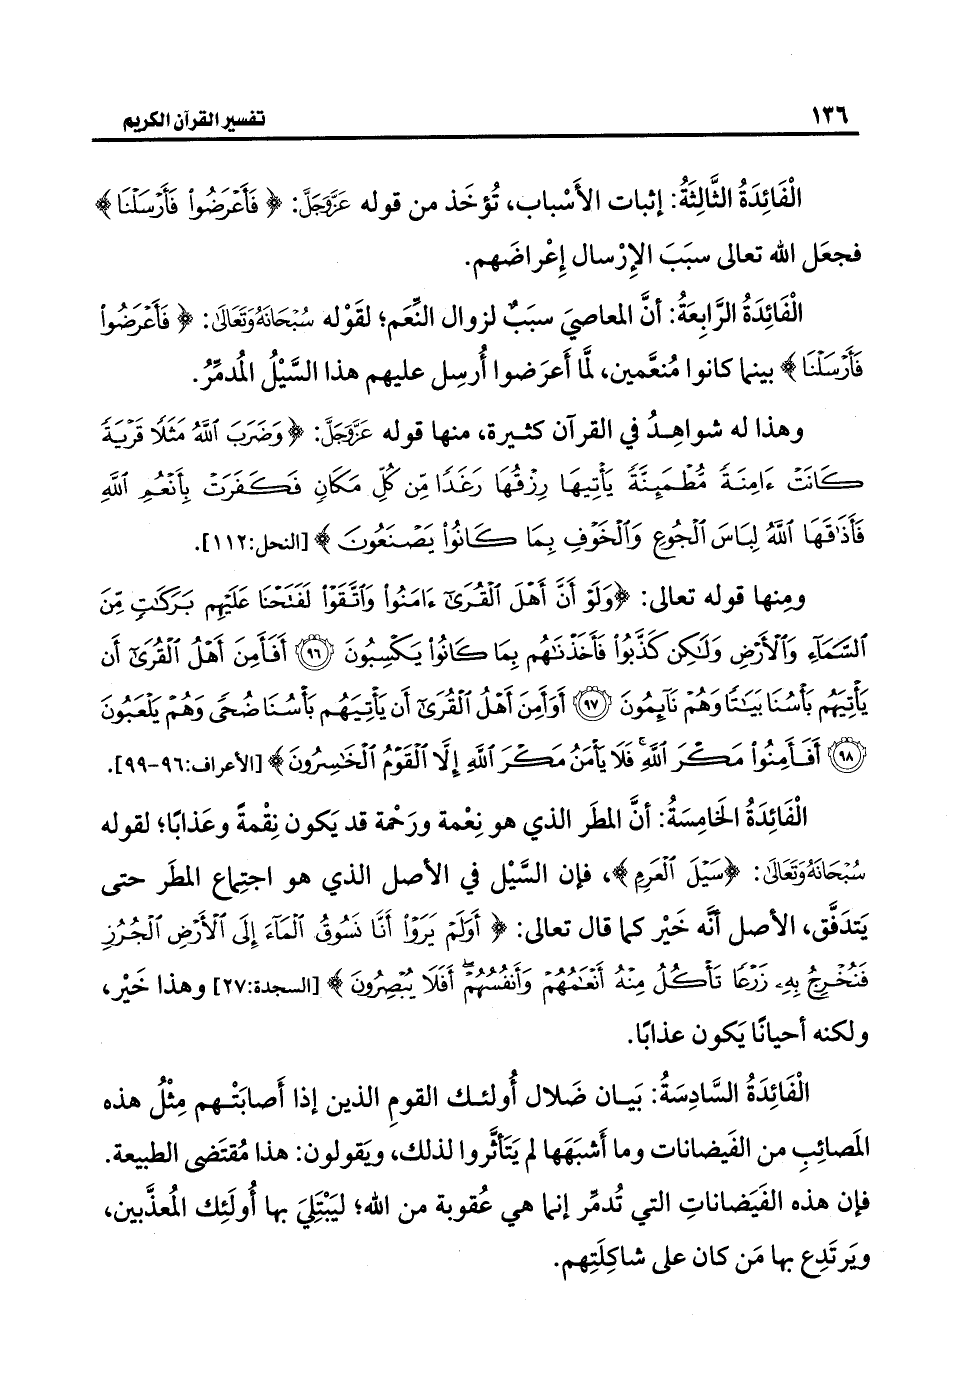 ١٣٦ تفسير القرآن الكريم
الْفَائِدَةُ الثَّالِثَةُ: إثبات الأَسْباب، تُؤخَذ من قوله عَزَّوَجَلَّ: ﴿ فَأَعْرَضُوا۟ فَأَرْسَلْنَا ﴾
فجعَل الله تعالى سبَبَ الإِرْسال إِعْراضَهم.
الْفَائِدَةُ الرَّابِعَةُ: أنَّ المعاصِيَ سببٌ لزوال النِّعَم؛ لقَوْله سُبْحَانَهُ وَتَعَالَى: ﴿ فَأَعْرَضُوا۟
فَأَرْسَلْنَا ﴾ بينما كانوا مُنعَّمين، لمَّا أَعرَضوا أُرسِل عليهم هذا السَّيْلُ المُدمِّرُ.
وهذا له شواهِدُ في القرآن كثيرة، منها قوله عَزَّوَجَلَّ: ﴿ وَضَرَبَ ٱللَّهُ مَثَلًا قَرْيَةً
كَانَتْ ءَامِنَةً مُّطْمَئِنَّةً يَأْتِيهَا رِزْقُهَا رَغَدًا مِّن كُلِّ مَكَانٍ فَكَفَرَتْ بِأَنْعُمِ ٱللَّهِ
فَأَذَاقَهَا ٱللَّهُ لِبَاسَ ٱلْجُوعِ وَٱلْخَوْفِ بِمَا كَانُوا۟ يَصْنَعُونَ ﴾ [النحل:١١٢].
ومِنها قوله تعالى: ﴿وَلَوْ أَنَّ أَهْلَ ٱلْقُرَىٰٓ ءَامَنُوا۟ وَٱتَّقَوْا۟ لَفَتَحْنَا عَلَيْهِم بَرَكَٰتٍ مِّنَ
ٱلسَّمَآءِ وَٱلْأَرْضِ وَلَٰكِن كَذَّبُوا۟ فَأَخَذْنَٰهُم بِمَا كَانُوا۟ يَكْسِبُونَ ۝٩٦ أَفَأَمِنَ أَهْلُ ٱلْقُرَىٰٓ أَن
يَأْتِيَهُم بَأْسُنَا بَيَٰتًا وَهُمْ نَآئِمُونَ ۝٩٧ أَوَأَمِنَ أَهْلُ ٱلْقُرَىٰٓ أَن يَأْتِيَهُم بَأْسُنَا ضُحًى وَهُمْ يَلْعَبُونَ
۝٩٨ أَفَأَمِنُوا۟ مَكْرَ ٱللَّهِ ۚ فَلَا يَأْمَنُ مَكْرَ ٱللَّهِ إِلَّا ٱلْقَوْمُ ٱلْخَٰسِرُونَ ﴾ [الأعراف:٩٦-٩٩].
الْفَائِدَةُ الخَامِسَةُ: أنَّ المطَر الذي هو نِعْمة ورَحْمة قد يَكون نِقْمةً وعَذابًا؛ لقوله
سُبْحَانَهُ وَتَعَالَى: ﴿سَيْلَ ٱلْعَرِمِ﴾، فإن السَّيْل في الأصل الذي هو اجتِماع المطَر حتى
يَتدَفَّق، الأصل أنَّه خَيْر كما قال تعالى: ﴿ أَوَلَمْ يَرَوْا۟ أَنَّا نَسُوقُ ٱلْمَآءَ إِلَى ٱلْأَرْضِ ٱلْجُرُزِ
فَنُخْرِجُ بِهِۦ زَرْعًا تَأْكُلُ مِنْهُ أَنْعَٰمُهُمْ وَأَنفُسُهُمْ ۖ أَفَلَا يُبْصِرُونَ ﴾ [السجدة:٢٧] وهذا خَيْر،
ولكنه أحيانًا يَكون عذابًا.
الْفَائِدَةُ السَّادِسَةُ: بَيـان ضَلال أُولئـك القومِ الذين إذا أَصابَتْـهم مِثْلُ هذه
المَصائِبِ من الفَيضانات وما أَشبَهَها لم يَتأثَّروا لذلك، ويَقولون: هذا مُقتَضى الطبيعة.
فإن هذه الفَيَضاناتِ التي تُدمِّر إنما هي عُقوبة من الله؛ ليَبْتَلِيَ بها أُولَئِك المُعذَّبين،
ويَرتَدِع بها مَن كان على شاكِلَتِهم.